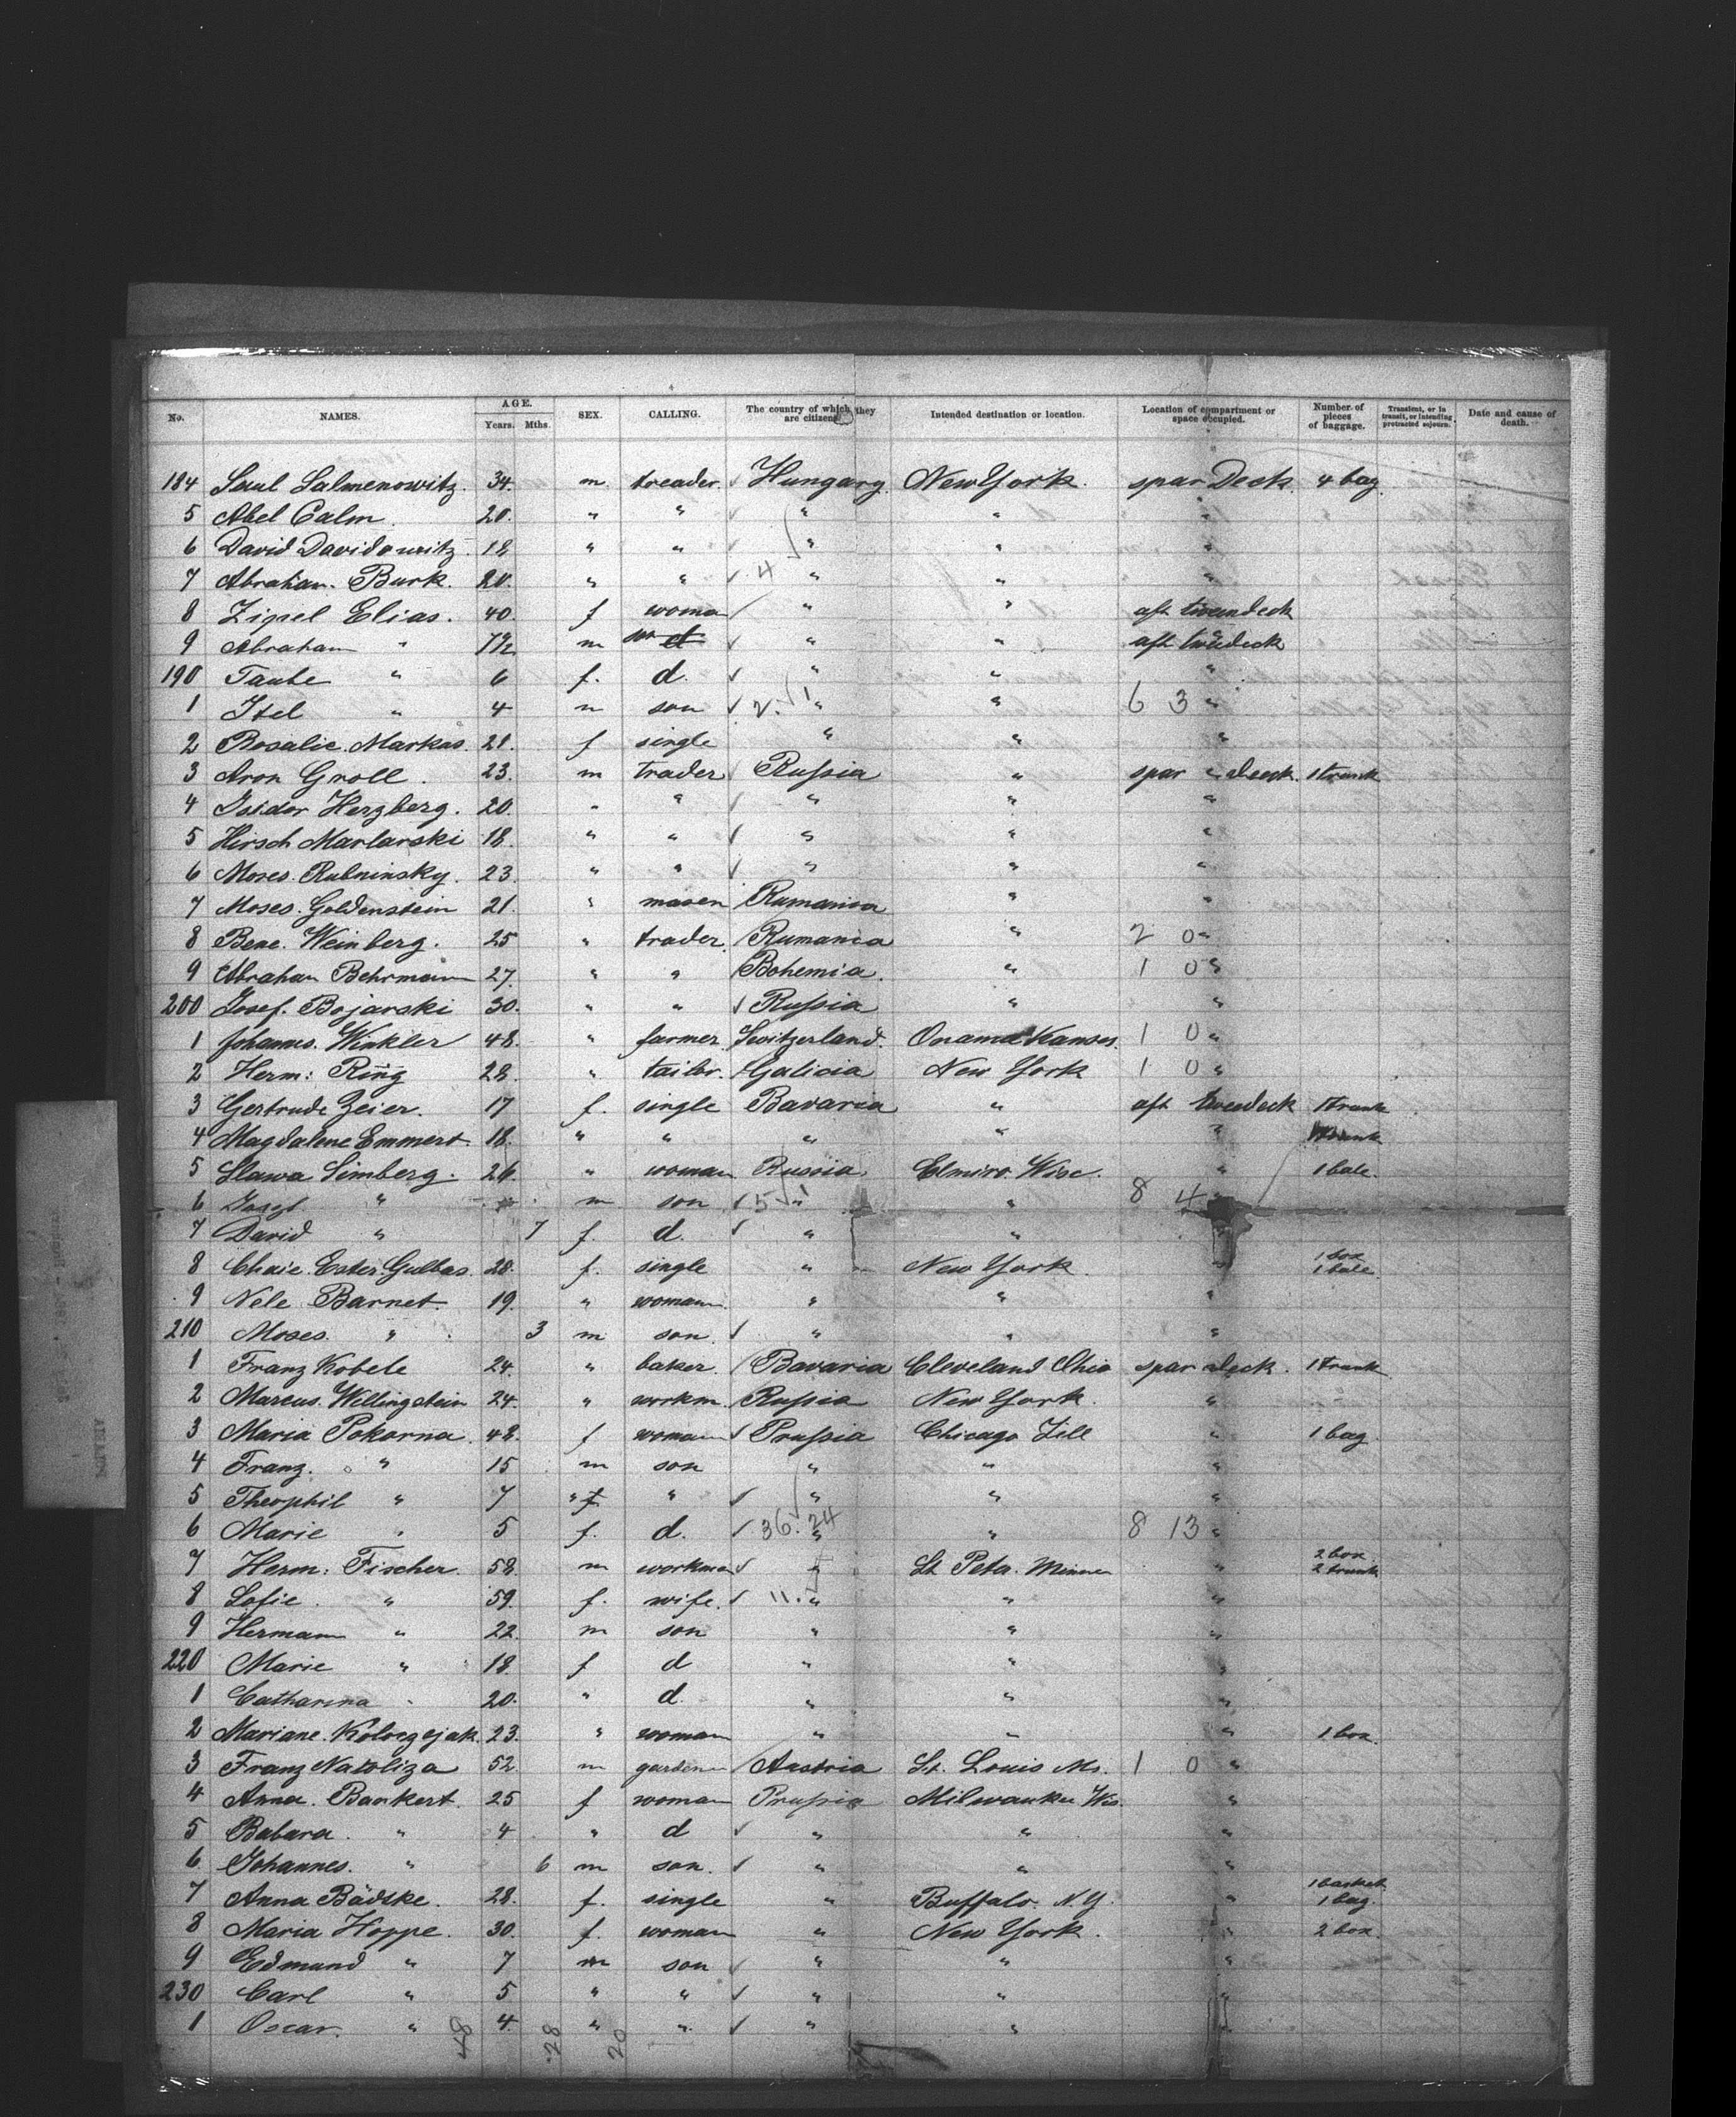 No. NAMES. AGE. Years. Mths. SEX. CALLING. The country of which they are citizens. Intended destination or location. Location of compartment or space occupied. Number of pieces of baggage. Transient, or in transit, or intending protracted sojourn. Date and cause of death.
184 Saul Salmenowitz. 34. m. treader. Hungary. New York. spar Deck. 4 bag.
5 Abel Calm. 20. " " " " "
6 David Davidowitz. 18 " " " " "
7 Abraham. Burk. 20. " " 4 " " "
8 Zipel Elias. 40. f woman " " aft tweendeck
9 Abraham " m son " " aft
190 Taube " 6 f. d. " " "
1 Itel " 4 m son 2. 1 " " 6 3 "
2 Rosalie. Markas. 21. f single " " "
3 Aron Groll. 23. m trader Russia " spar " deck. 1 trunk
4 Isidor Herzberg. 20. " " " " "
5 Hirsch Marlarski 18. " " " " "
6 Moses. Rubninsky. 23. " " " " "
7 Moses. Goldenstein 21. " mason Rumania " "
8 Bene. Weinberg. 25 " trader Rumania " 2 0 "
9 Abraham Behrmann 27. " " Bohemia. " 1 0 "
200 Josef. Bojarski 30. " " Russia " "
1 Johannes. Winkler 48. " farmer Switzerland. Kansas. 1 0 "
2 Herm: Ring 28. " tailor. Galicia New York 1 0 "
3 Gertrude Zeier. 17 f. single Bavaria " aft tweedeck 1 trunk
4 Magdalene Emmert. 18. " " " " " 1 trunk
5 Slawa Simberg. 26. " woman Russia Elmira. Wisc. " 1 bale.
6 " m son 5 1 " " 8 4 "
7 David " 7 f. d. " " "
8 Chaie. Ester. Gulbas. 28. f. single " New York. " 1 box 1 bale.
9 Nele Barnet. 19. " woman. " " "
210 Moses. " 3 m son. " " "
1 Franz Kobele 24. " baker. Bavaria Cleveland Ohio spar deck. 1 trunk
2 Marcus. Willingstein 24. " workm. Russia New York. "
3 Maria Pokorna. 48. f woman Prussia Chicago Ill " 1 bag.
4 Franz. " 15 m son " " "
5 Theophil " 7 " f " " " "
6 Marie " 5 f. d. 36. 24 " " 8 13 "
7 Herm: Fischer. 58. m workman " St Peter. Minne " 2 box. 2 trunk
8 Sofie. " 59. f. wife. 11. " " "
9 Hermann " 22. m son " " "
220 Marie " 18. f d " " "
1 Catharina " 20. " d. " " "
2 Mariane. 23. " woman " " " 1 box.
3 Franz Natoliza 52. m Austria St. Louis Mo. 1 0 "
4 Anna. Bankert. 25 f woman Prussia Milwaukee Wis. "
5 Babara. " 4 " d " " "
6 Johannes. " 6 m son. " " "
7 Anna Bädske. 28. f. single " Buffalo. N.Y. " 1 basket 1 bag.
8 Maria Hoppe. 30. f. woman " New York. " 2 box.
9 Edmund " 7 m son " " "
230 Carl " 5 " " " " "
1 Oscar. " 4. " " " " "
48 28 20